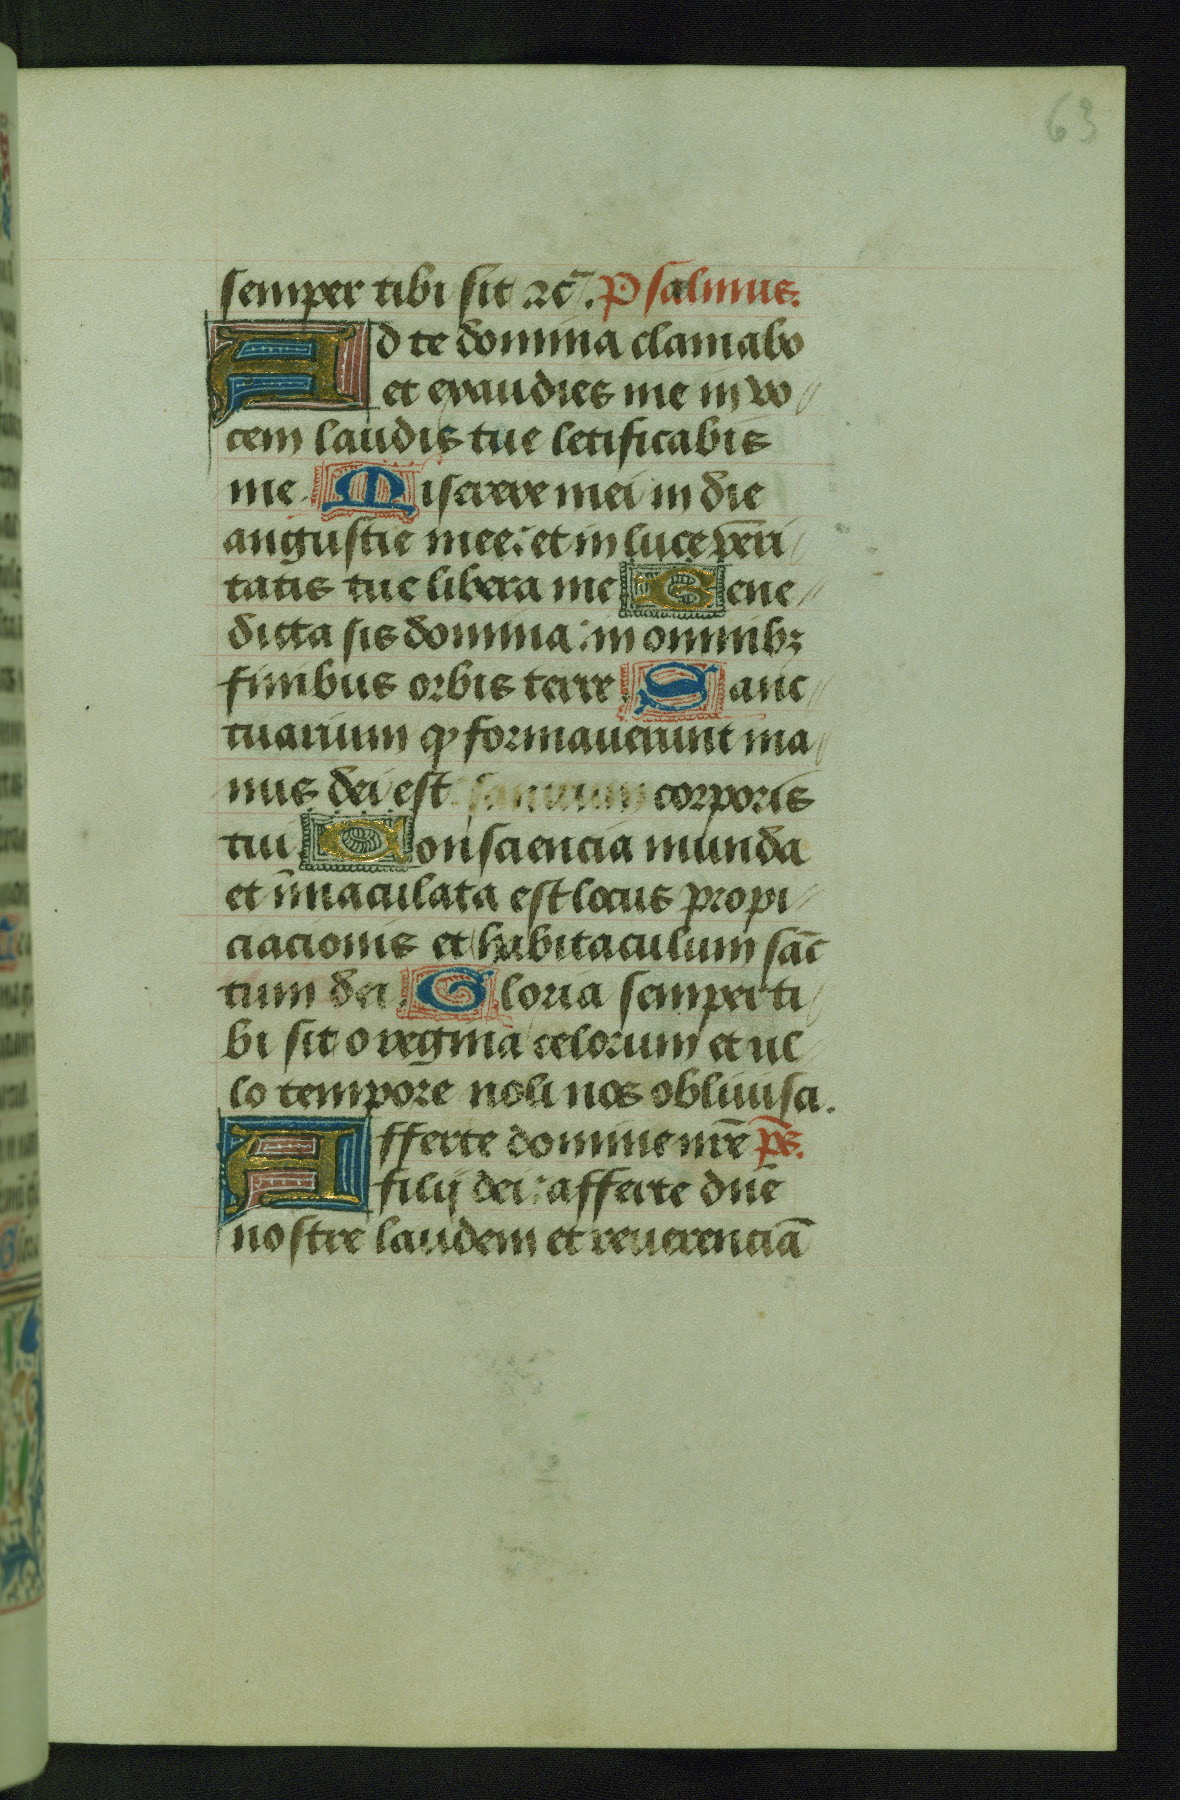 63
semper tibi sit ⁊c̄. Psalmus.
Ad te domina clamabo
et exaudies me in vo
cem laudis tue letificabis
me. Miserere mei in die
angustie mee: et in luce veri
tatis tue libera me Bene
dicta sis domina: in omnibꝫ
finibus orbis terre. Sanc
tuarium ꝙ formauerunt ma
nus dei est corporis
tui. Consciencia munda
et īmaculata est locus propi
ciacionis et habitaculum sāc
tum dei. Gloria semper ti
bi sit o regina celorum et ul
lo tempore noli nos obliuisci.
Afferte domine nr̄e ps̄.
filij dei: afferte dn̄e
nostre laudem et reuerenciā